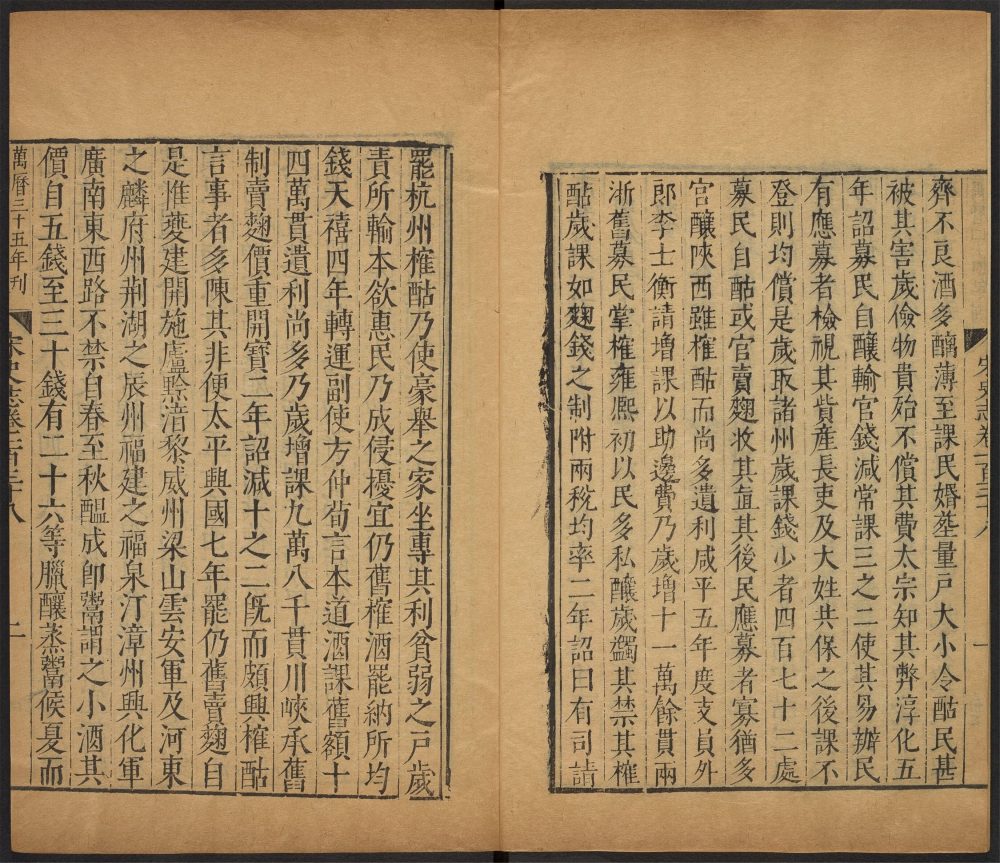 齊不良酒多醨薄至課民婚葬量戸大小令酤民甚
被其害歲儉物貴殆不償其費太宗知其弊淳化五
年詔募民自釀輸官錢減常課三之二使其易辦民
有應募者檢視其貲産長吏及大姓共保之後課不
登則均償是歲取諸州歲課錢少者四百七十二處
募民自酤或官賣麴收其直其後民應募者寡猶多
官釀陝西雖榷酤而尚多遺利咸平五年度支員外
郎李士衡請增課以助邊費乃歲增十一萬餘貫兩
浙舊募民掌榷雍熙初以民多私釀歲蠲其禁其榷
酤歲課如麴錢之制附兩稅均率二年詔曰有司請
罷杭州榷酤乃使豪舉之家坐專其利貧弱之戸歲
責所輸本欲惠民乃成侵擾宜仍舊榷酒罷納所均
錢天禧四年轉運副使方仲荀言本道酒課舊額十
四萬貫遺利尚多乃歲增課九萬八千貫川峽承舊
制賣麴價重開寶二年詔減十之二旣而頗興榷酤
言事者多陳其非便太平興國七年罷仍舊賣麴自
是惟夔建開施廬黔涪黎威州梁山雲安軍及河東
之麟府州荆湖之辰州福建之福泉汀漳州興化軍
廣南東西路不禁自春至秋醞成卽鬻謂之小酒其
價自五錢至三十錢有二十六等臘釀蒸鬻候夏而
萬曆三十五年刊
宋史志卷一百三十八
二